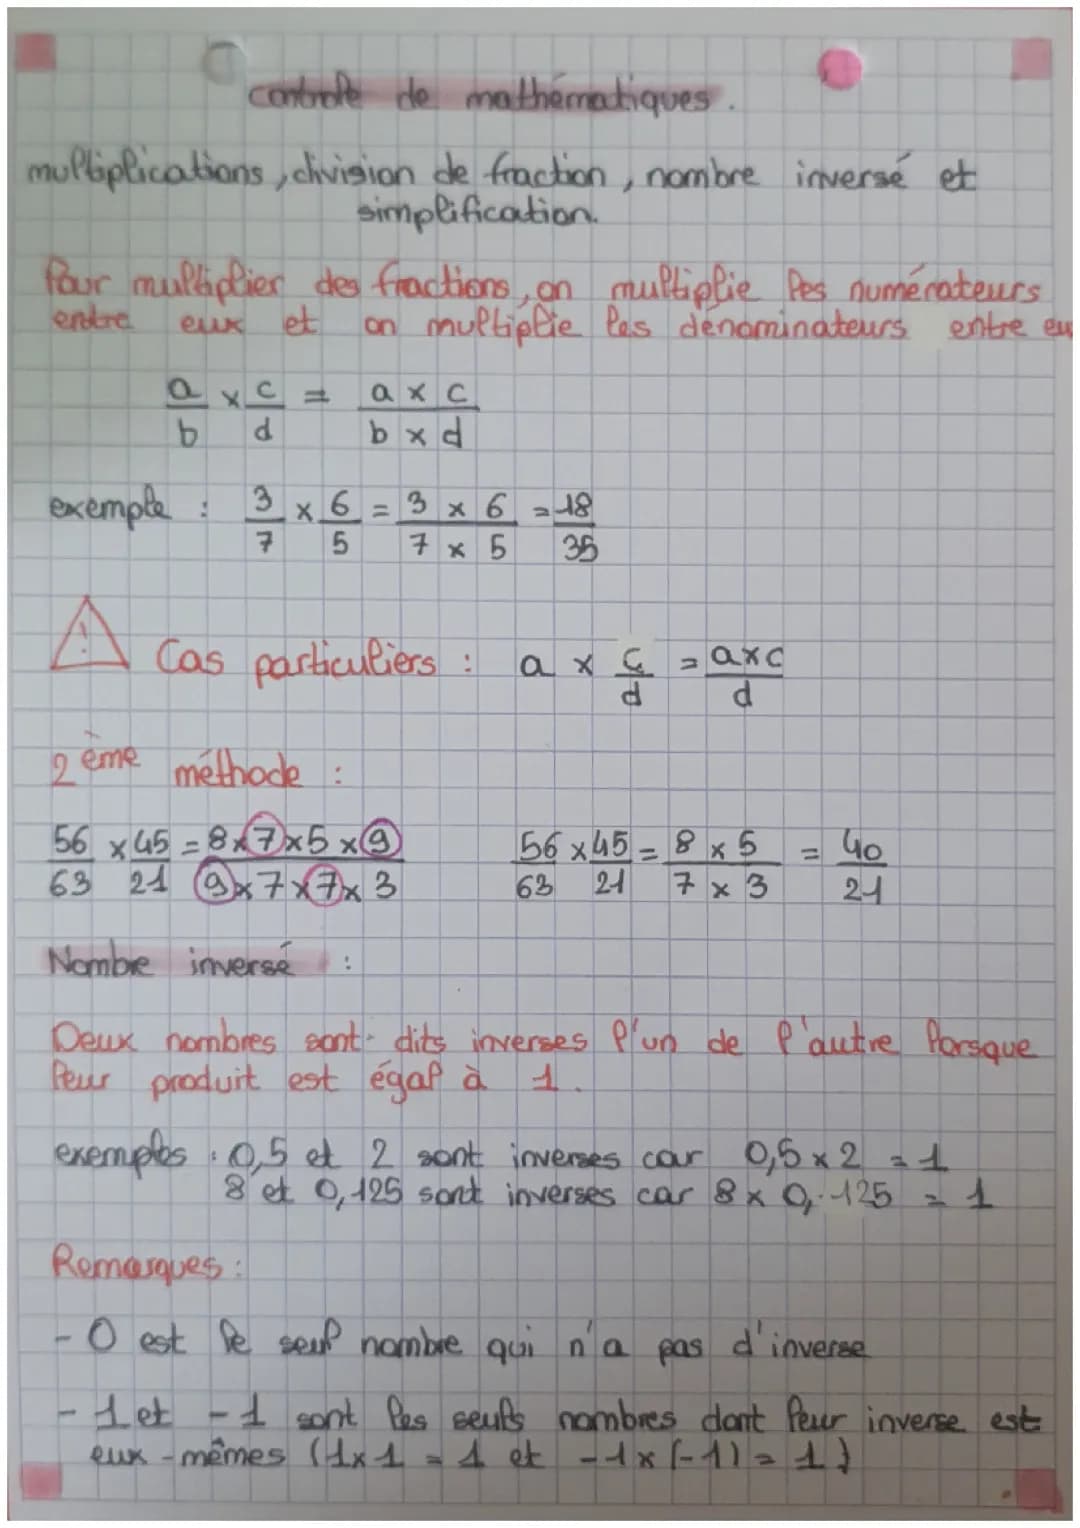 contrôle de mathématiques.
multiplications, division de fraction, nombre inversé et
simplification.
Pour multiplier des fractions, on multiplie les numérateurs
entre eux et on multiplie les dénominateurs entre eu
a/b × c/d = a × c / b × d
exemple : 3/7 × 6/5 = 3 × 6 / 7 × 5 = 18/35
! Cas particuliers : a × c/d = a×c/d
2 ème méthode :
56/63 × 45/21 = 8×7×5×9 / 9×7×7×3 56/63 × 45/21 = 8 × 5 / 7 × 3 = 40/21
Nombre inversé :
Deux nombres sont dits inverses l'un de l'autre lorsque
leur produit est égal à 1.
exemples : 0,5 et 2 sont inverses car 0,5 × 2 = 1
8 et 0,125 sont inverses car 8 × 0,125 = 1
Remarques :
- 0 est le seul nombre qui n'a pas d'inverse
- 1 et -1 sont les seuls nombres dont leur inverse est
eux-mêmes (1×1 = 1 et -1×(-1) = 1)